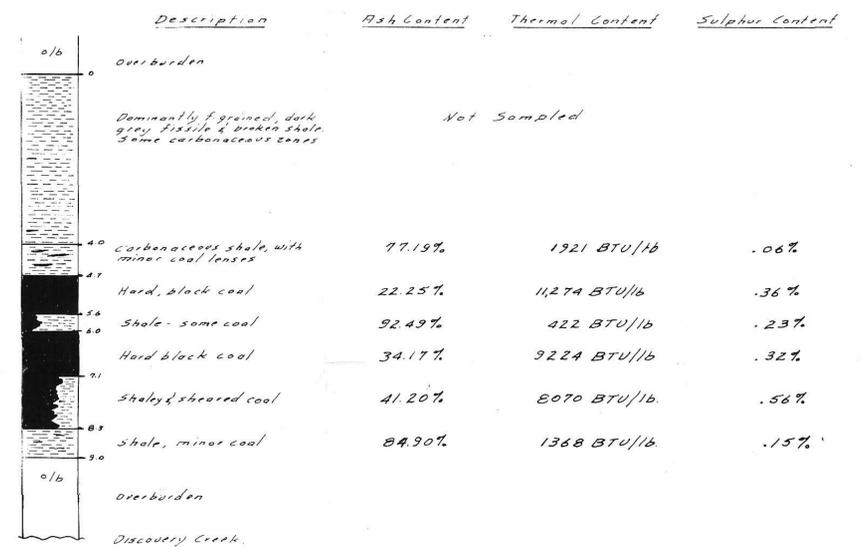 Description Ash Content Thermal Content Sulphur Content
o/b
Overburden
0
Dominantly f grained, dark
grey fissile & broken shale.
Some carbonaceous zones
Not Sampled
4.0
Carbonaceous shale, with
minor coal lenses
77.19% 1921 BTU/lb .06%
4.7
Hard, black coal 22.25% 11,274 BTU/lb .36%
5.6
Shale - some coal 92.49% 422 BTU/lb .23%
6.0
Hard black coal 34.17% 9224 BTU/lb. .32%
7.1
Shaley & sheared coal 41.20% 8070 BTU/lb. .56%
8.3
Shale, minor coal 84.90% 1368 BTU/lb. .15%
9.0
o/b
Overburden
Discovery Creek.